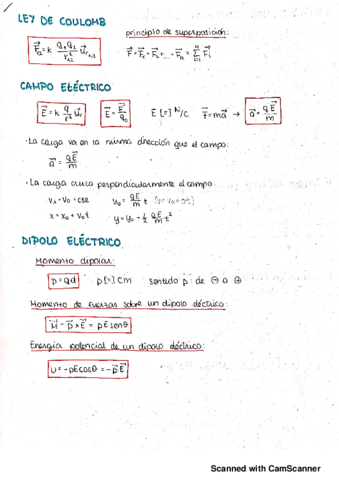 LEY DE COULOMB
principio de superposición:
F⃗₁₂ = k q₁q₂/r₁₂² u⃗r₁₂    F⃗ = F⃗₁ + F⃗₂ + ... + F⃗n = Σ F⃗i
CAMPO ELÉCTRICO
E⃗ = k q/r² u⃗r    E⃗ = F⃗/q₀    E [=] N/C    F⃗ = ma⃗ → a⃗ = qE⃗/m
· La carga va en la misma dirección que el campo:
a⃗ = qE⃗/m
· La carga cruza perpendicularmente el campo
vx = v₀ = cte    = qE/m t (v = v₀ + at)
x = x₀ + v₀t    y = y₀ + ½ qE/m t²
DIPOLO ELÉCTRICO
Momento dipolar:
p = qd    p [=] Cm    sentido p⃗: de ⊖ a ⊕
Momento de fuerzas sobre un dipolo eléctrico:
M⃗ = p⃗ x E⃗ = pE senθ
Energía potencial de un dipolo eléctrico:
U = -pE cosθ = -p⃗ E⃗
Scanned with CamScanner